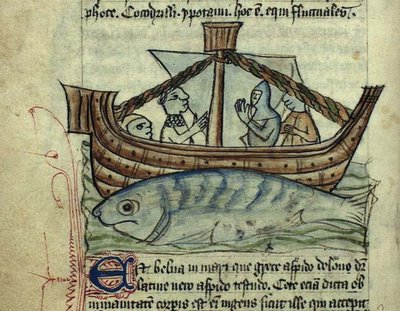 phoce. Cocodrilli. ypotami. hoc ē. equi fluctuales.
Est belua in mari que grece aspido delone dr̄
latine vero aspido testudo. Cete eciā dicta ob
immanitatem corpis est eñ ingens sicut ille qui accepit